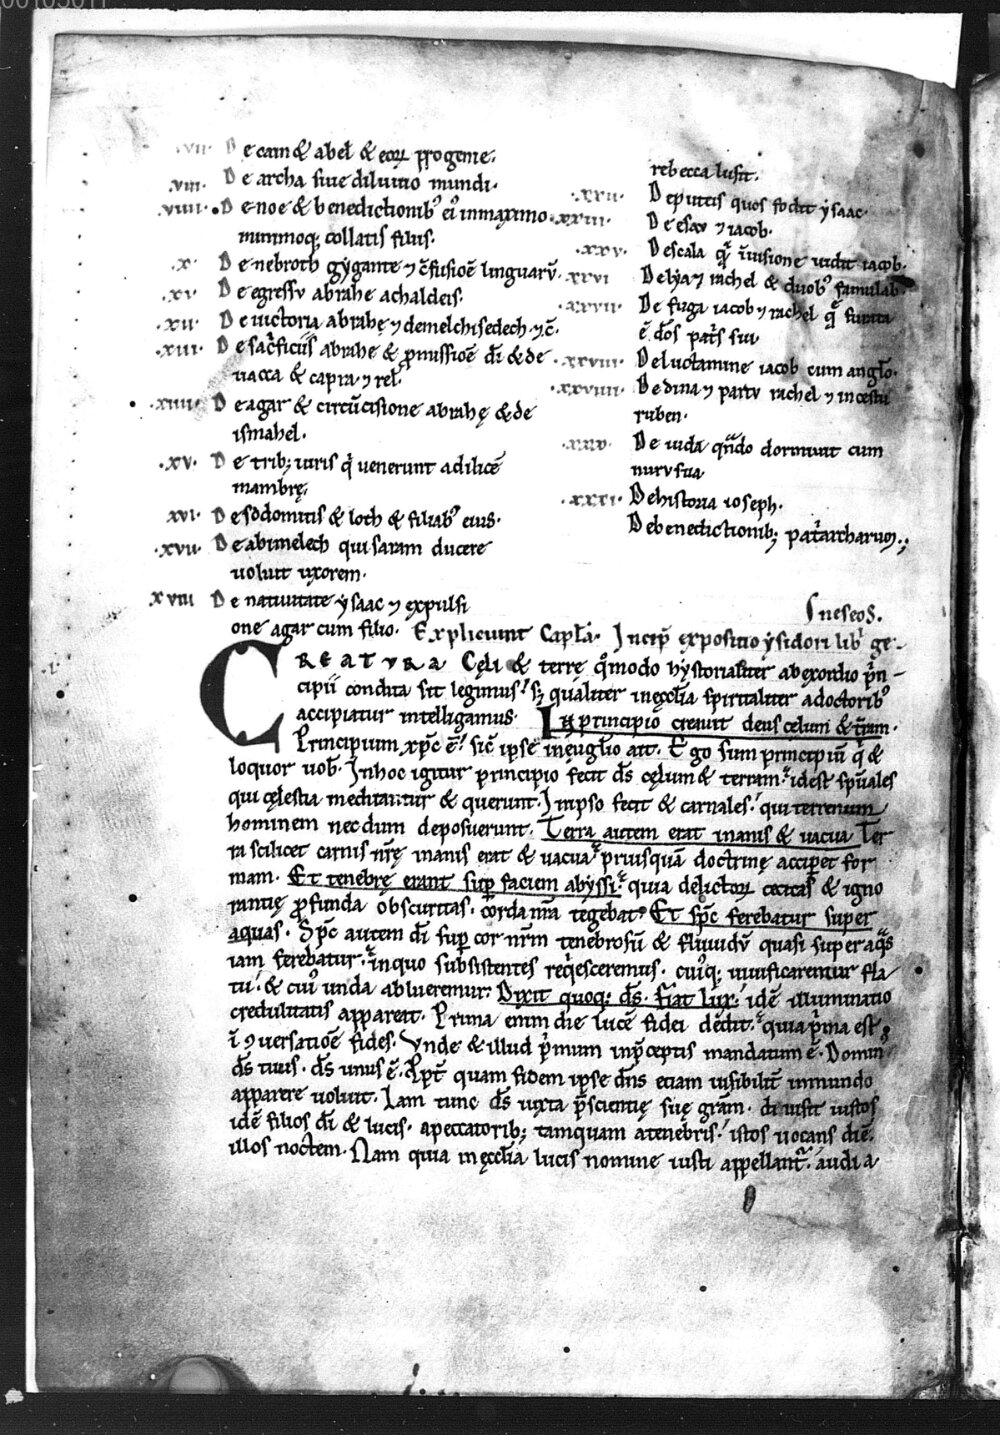 .vii. De cain & abel & eorꝝ progenie.
.viii. De archa siue diluuio mundi.
.viiii. De noe & benedictionib; ei' in maximo
minimoq; collatis filiis.
.x. De nebroth gygante ⁊ c̄fusioē linguarū.
.xi. De egressu abrahe a chaldeis.
.xii. De uictoria abrahę ⁊ de melchisedech ⁊ c̄.
.xiii. De sac̄ficiis abrahe & p̄missioē dī & de
uacca & capra ⁊ rel̄.
.xiiii. De agar & circūcisione abrahę & de
ismahel.
.xv. De trib; uiris q̄ uenerunt ad ilicē
mambrę.
.xvi. De sodomitis & loth & filiab; eius.
.xvii. De abimelech qui saram ducere
uoluit uxorem.
xviii De natiuitate ysaac ⁊ expulsi
one agar cum filio. Expliciunt Capl̄a. Incip̄ expositio ysidori lib' ge-
neseos.
rebecca lusit.
.xxii. De puteis quos fodit ysaac.
.xxiii. De esau ⁊ iacob.
.xxv. De scala quā ī uisione uidit iacob.
xxvi De lya ⁊ rachel & duob; famulab.
.xxvii. De fuga iacob ⁊ rachel q̄ furata
ē dōs pat̄s sui
.xxviii. De luctamine iacob cum anglo.
.xxviiii. De dina ⁊ partu rachel ⁊ incestu
ruben.
.xxx. De iuda qn̄do dormiuit cum
nuru sua
.xxxi. De historia ioseph.
De benedictionib; pat̄archarum.;
CREATVRA Cęli & terrę qͦmodo hystorialiter ab exordio p̄n-
cipii condita sit legimus. s; qualiter in ęcclia spiritaliter a doctorib;
accipiatur intelligamus. In principio creauit deus cęlum & t̄ram.
Principium xp̄c ē. sic̄ ipse in euglio ait. Ego sum principiū q̄ &
loquor uob. In hoc igitur principio fecit d̄s cęlum & terram. id est sp̄uales
qui cęlestia meditantur & querunt. In ipso fecit & carnales. qui terrenum
hominem necdum deposuerunt. Terra autem erat inanis & uacua Ter
ra scilicet carnis nr̄ę inanis erat & uacua priusquā doctrinę acciperet for
mam. Et tenebrę erant sup faciem abyssi. quia delictorꝝ cecitas & igno
rantię p̄funda obscuritas. corda nr̄a tegebat. Et sp̄c ferebatur super
aquas. Sp̄c autem dī sup cor nr̄m tenebrosū & fluuidū quasi super aq̄s
iam ferebatur. in quo subsistentes req̄esceremus. cui'q; uiuificaremur fla
tu. & cui' unda ablueremur. Dixit quoq; d̄s. fiat lux. idē illuminatio
credulitatis appareat. Prima enim die lucē fidei dedit. quia p̄ma est
ī ꝯuersatioē fides. Vnde & illud p̄mum in p̄ceptis mandatum ē. Domin'
d̄s tuus. d̄s unus ē. Ppt̄ quam fidem ipse dn̄s etiam uisibilit̄ in mundo
apparere uoluit. Iam tunc d̄s iuxta p̄scientię suę gram̄. diuisit iustos
idē filios dī & lucis. a peccatorib; tamquam a tenebris. istos uocans diē.
illos noctem. Nam quia in ęcclia lucis nomine iusti appellant̄. audi a